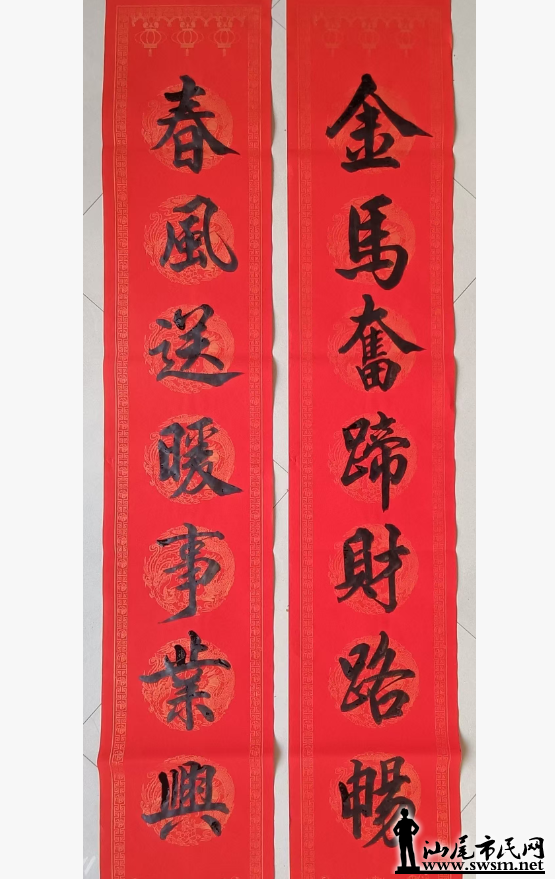 金馬奮蹄財路暢
春風送暖事業興
汕尾市民网
www.swsm.net